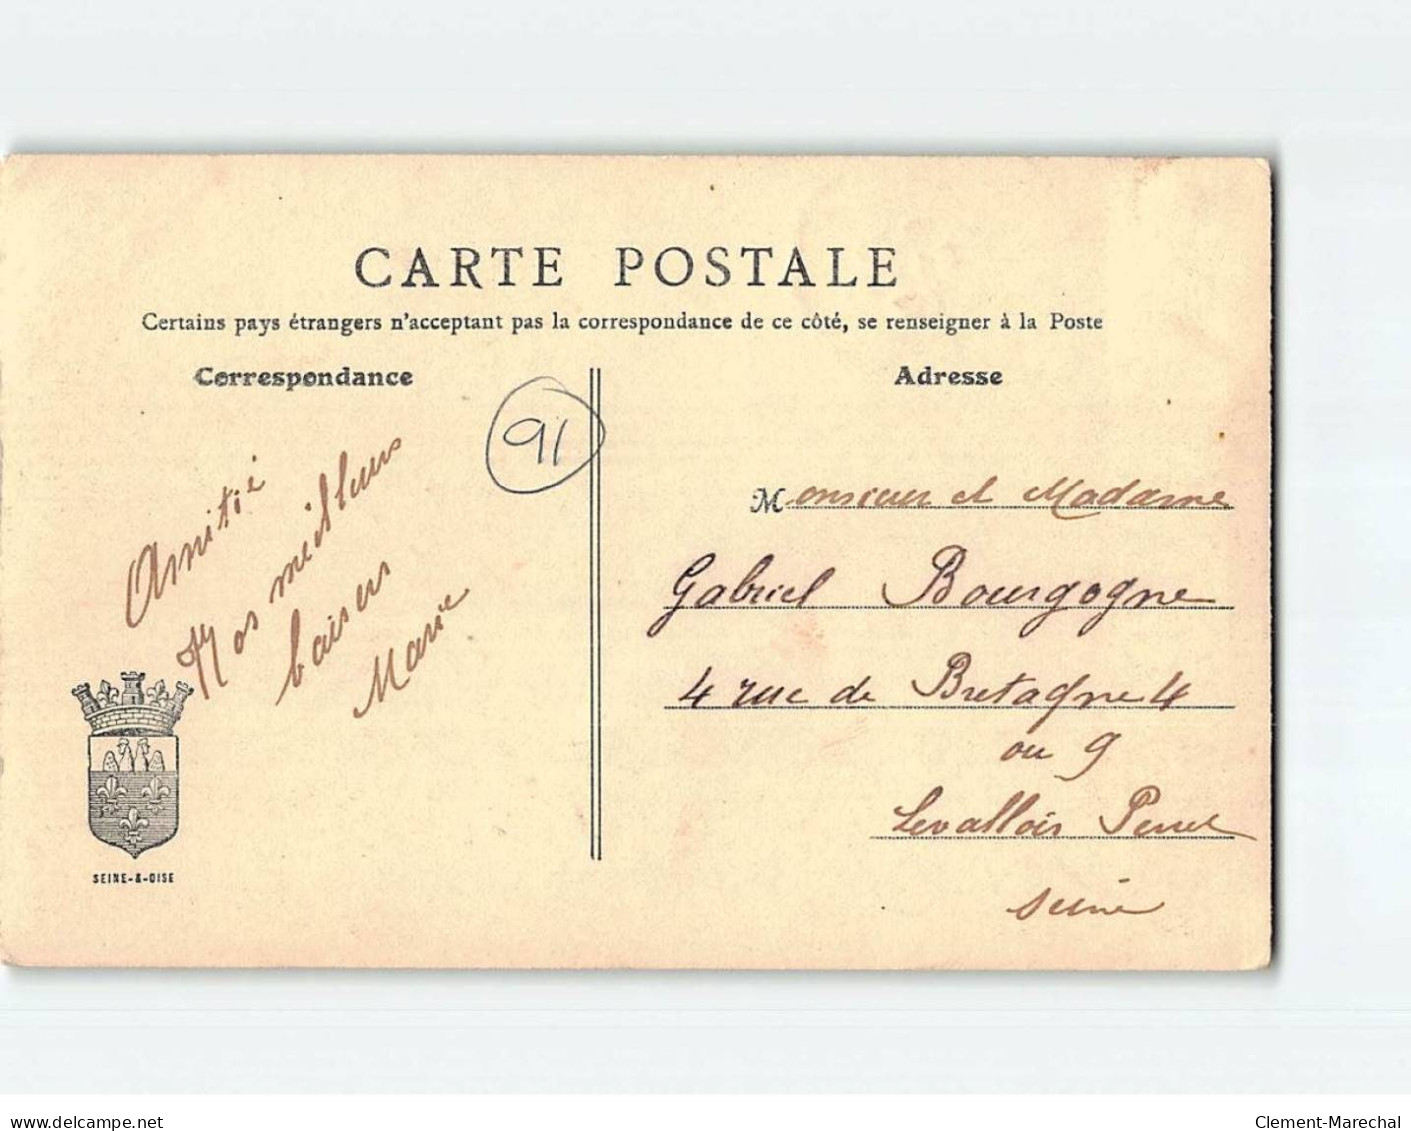 CARTE POSTALE
Certains pays étrangers n'acceptant pas la correspondance de ce côté, se renseigner à la Poste
Correspondance
Adresse
91
Amitié
Nos meilleurs
baisers
Marie
SEINE-&-OISE
Monsieur et Madame
Gabriel Bourgogne
4 rue de Bretagne 4
ou 9
Levallois Perret
Seine
www.delcampe.net
Clement-Marechal